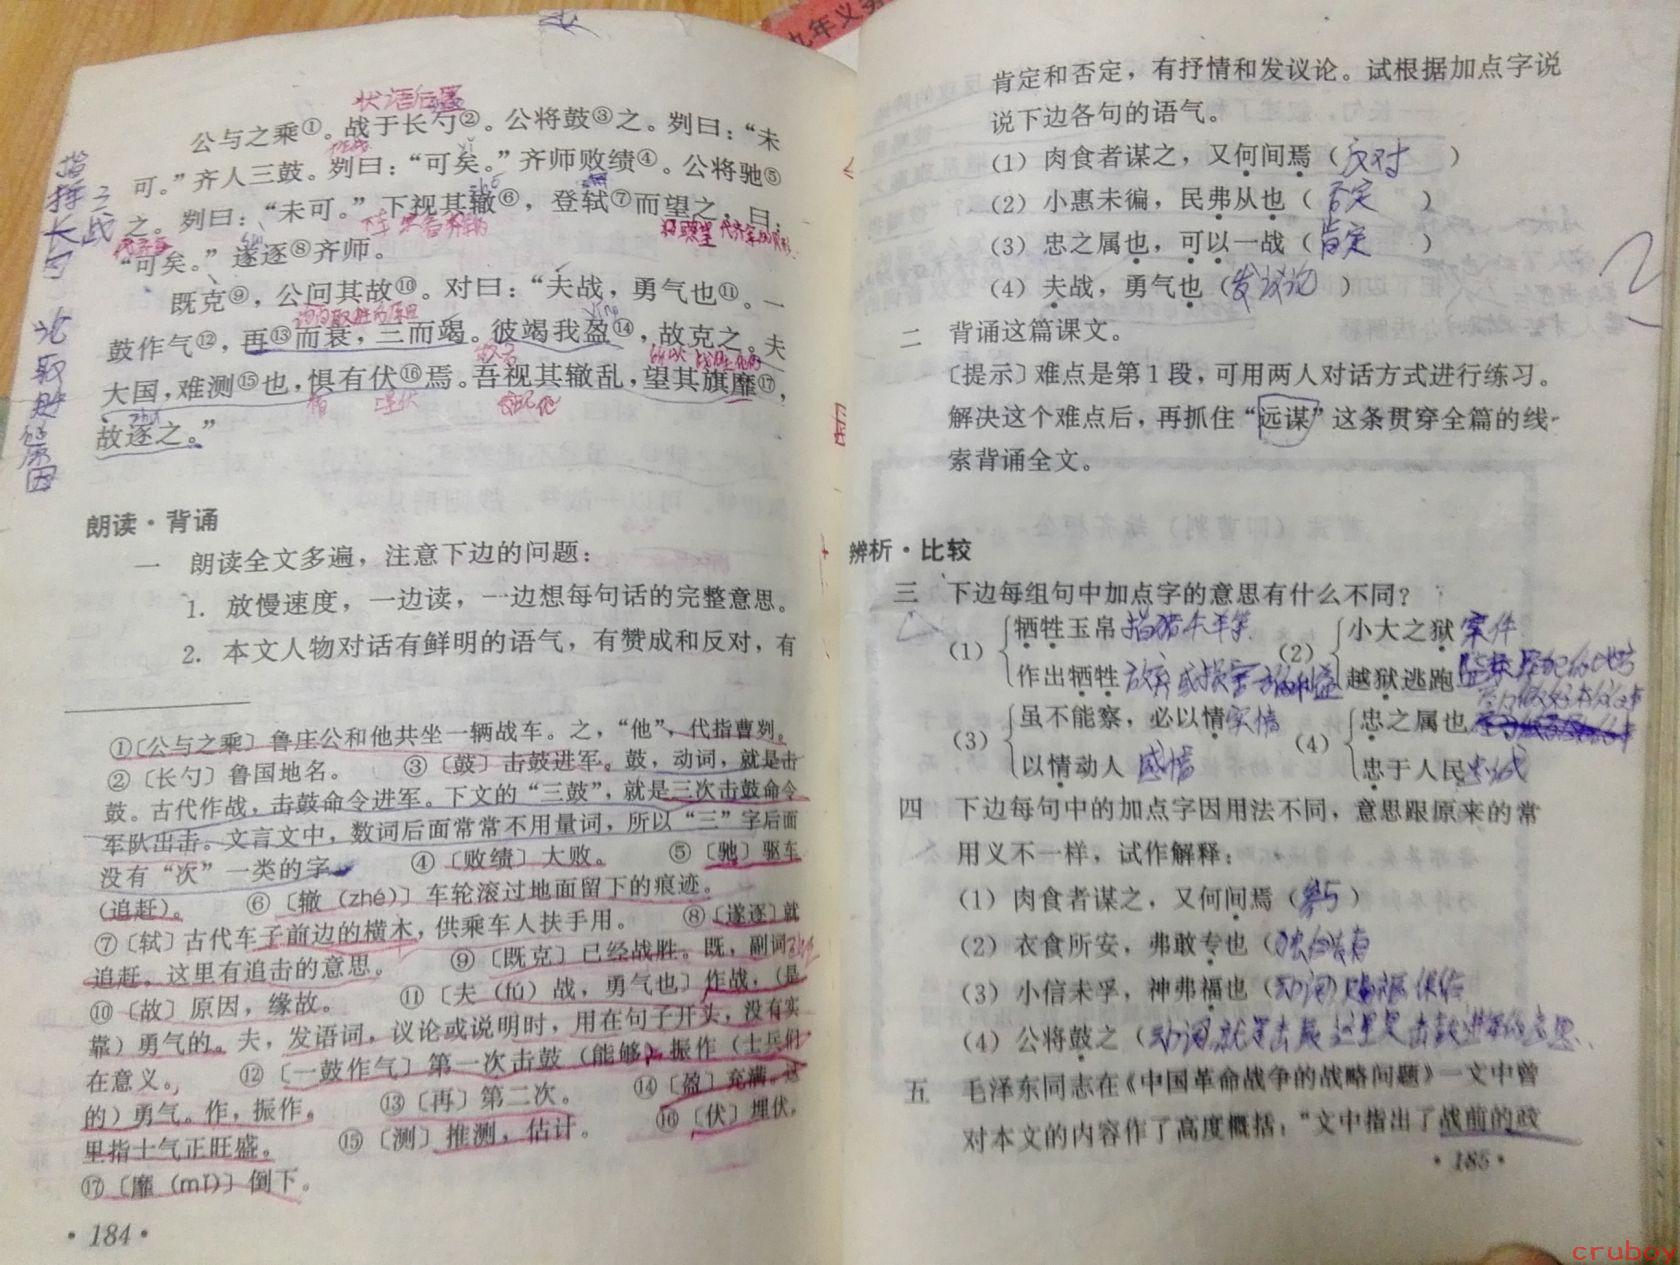 九年义务
状语后置
公与之乘①。战于长勺②。公将鼓③之。刿曰：“未
可。”齐人三鼓。刿曰：“可矣。”齐师败绩④。公将驰⑤
之。刿曰：“未可。”下视其辙⑥，登轼⑦而望之，曰：
“可矣。”遂逐⑧齐师。
既克⑨，公问其故⑩。对曰：“夫战，勇气也⑪。一
询问取胜的原因
鼓作气⑫，再⑬而衰，三而竭。彼竭我盈⑭，故克之。夫
大国，难测⑮也，惧有伏⑯焉。吾视其辙乱，望其旗靡⑰，
故逐之。”
朗读·背诵
一 朗读全文多遍，注意下边的问题：
1. 放慢速度，一边读，一边想每句话的完整意思。
2. 本文人物对话有鲜明的语气，有赞成和反对，有
①〔公与之乘〕鲁庄公和他共坐一辆战车。之，“他”，代指曹刿。
②〔长勺〕鲁国地名。 ③〔鼓〕击鼓进军。鼓，动词，就是击
鼓。古代作战，击鼓命令进军。下文的“三鼓”，就是三次击鼓命令
军队出击。文言文中，数词后面常常不用量词，所以“三”字后面
没有“次”一类的字。 ④〔败绩〕大败。 ⑤〔驰〕驱车
（追赶）。 ⑥〔辙（zhé）〕车轮滚过地面留下的痕迹。
⑦〔轼〕古代车子前边的横木，供乘车人扶手用。 ⑧〔遂逐〕就
追赶。这里有追击的意思。 ⑨〔既克〕已经战胜。既，副词
⑩〔故〕原因，缘故。 ⑪〔夫（fú）战，勇气也〕作战，（是
靠）勇气的。夫，发语词，议论或说明时，用在句子开头，没有实
在意义。 ⑫〔一鼓作气〕第一次击鼓（能够）振作（士兵们
的）勇气。作，振作。 ⑬〔再〕第二次。 ⑭〔盈〕充满。这
里指士气正旺盛。 ⑮〔测〕推测，估计。 ⑯〔伏〕埋伏。
⑰〔靡（mǐ）〕倒下。
·184·
肯定和否定，有抒情和发议论。试根据加点字说
说下边各句的语气。
（1）肉食者谋之，又何间焉（反对）
（2）小惠未徧，民弗从也（否定）
（3）忠之属也，可以一战（肯定）
（4）夫战，勇气也（发议论）
二 背诵这篇课文。
〔提示〕难点是第1段，可用两人对话方式进行练习。
解决这个难点后，再抓住“远谋”这条贯穿全篇的线
索背诵全文。
辨析·比较
三 下边每组句中加点字的意思有什么不同？
（1）牺牲玉帛 指猪牛羊等
作出牺牲 放弃或损害 利益
（2）小大之狱 案件
越狱逃跑
（3）虽不能察，必以情 实情
以情动人 感情
（4）忠之属也
忠于人民 忠诚
四 下边每句中的加点字因用法不同，意思跟原来的常
用义不一样，试作解释：
（1）肉食者谋之，又何间焉（参与）
（2）衣食所安，弗敢专也（独自占有
（3）小信未孚，神弗福也（动词
（4）公将鼓之（动词 就是击鼓 这里是击鼓进军的意思
五 毛泽东同志在《中国革命战争的战略问题》一文中曾
对本文的内容作了高度概括：“文中指出了战前的政
·185·
cruboy